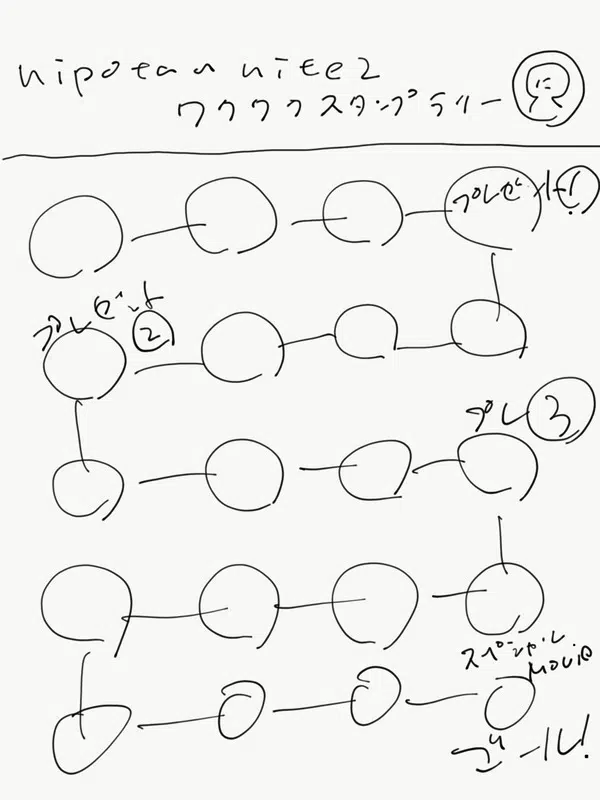 nipotan nite2
ワクワクスタンプラリー に
プレゼント①!
プレゼント
②
プレ③
スペシャル
MOVIE
ゴール!